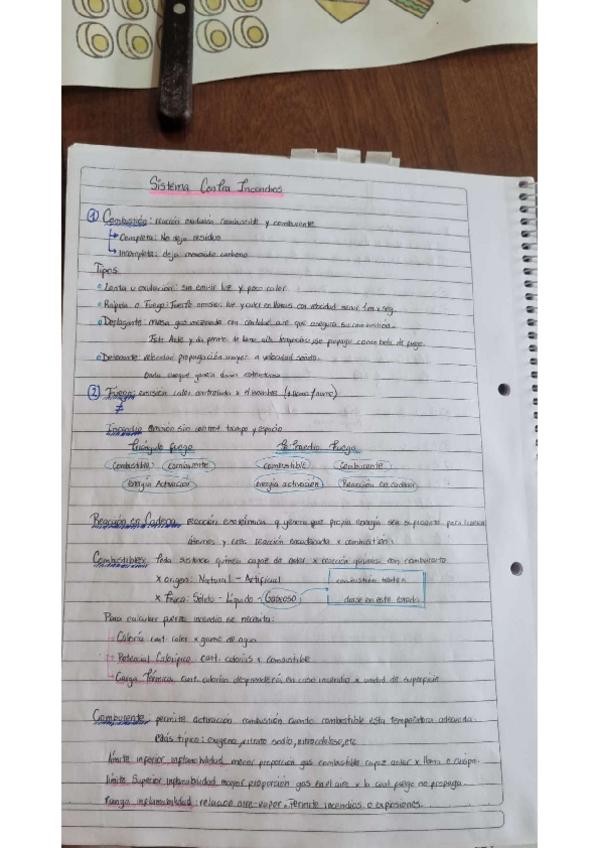 Sistema Contra Incendios
1 Combustión: reacción oxidación combustible y comburente
Completa: No deja residuo
Incompleta: deja monoxido carbono
Tipos
Lenta u oxidación: sin emitir luz y poco calor.
Rápida o Fuego: Fuerte emisión luz y calor en llamas con velocidad menor 1 m x seg.
Deflagante: masa gas mezclada con cantidad aire que asegura su combustión.
Este Arde y da frente de llama alta temperatura, se propaga como bola de fuego.
Detonante: velocidad propagación mayor a velocidad sonido.
Onda choque genera daños estructuras
2 Fuego: emisión calor controlada x el hombre (+ llama/humo)
≠
Incendio emisión sin control tiempo y espacio
Triángulo fuego Tetraedro Fuego
Combustible comburente combustible Comburente
Energía Activación energía activación Reacción en cadena
Reacción en Cadena reacción exotérmica q genera que propia energía sea suficiente para
átomos y crea reacción encadenada x combustión.
Combustibles: Toda sustancia química capaz de arder x reacción química con comburente
x origen: Natural - Artificial combustión
x Física: Sólido - Líquido - Gaseoso darse en este estado
Para calcular fuerza incendio se necesita:
Caloría cant. calor x gramo de agua
Potencial Calorífico cant. calorías x combustible
Carga Térmica cant. calorías desprenderá, en caso incendio x unidad de superficie
Comburente permite activación combustión cuando combustible esta temperatura adecuada.
+ típico: oxigeno, nitrato sodio, nitrocelulosa, etc
Límite inferior inflamabilidad menor proporción gas combustible capaz arder x llama o chispa.
Límite Superior inflamabilidad mayor proporción gas en el aire x la cual fuego no propaga.
Rango inflamabilidad: relación aire-vapor. Permite incendios o explosiones.